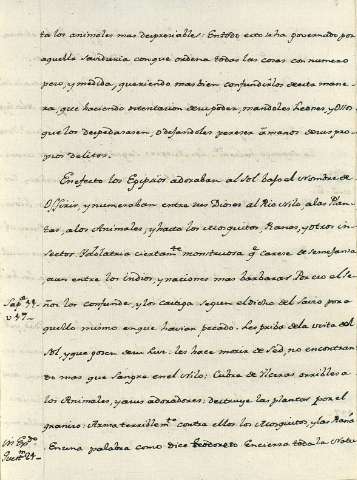 ta los animales mas despreciables: En todo esto se ha governado por
aquella saviduria con que ordena todas las cosas con numero
peso, y medida, queriendo mas bien confundirlos de esta mane-
ra, que haciendo ostentacion de su poder, mandoles Leones, y Ossos
que los despedasasen, o dejandoles pereser à manos de sus pro-
prios delitos.
En efecto los Egipcios adoraban al Sol bajo el Nombre de
Ossirir, y numeraban entre sus Dioses al Rio Nilo, a las Plan-
tas, a los Animales, y hasta los Mosquitos, Ranas, y otros in-
sectos. Ydolatria ciertam.te monstruosa q.e carese de semejansa
aun entre los Indios, y naciones mas barbaras. Por eso el Se-
Sap.a 11. ñor los confunde, y los castiga segun el dicho del Savio por a
v. 17. quello mismo en que havian pecado. Les priba de la vista del
Sol, y que gosen de su Luz: les hace morir de Sed, no encontran
do mas que Sangre en el Nilo: Cubre de Ulceras orribles a
los Animales, y a sus adoradores: destruye las plantas por el
granizo: Arma terriblem.te contra ellos los Mosquitos, y las Ranas
En una palabra como dice Teodoreto Encierra toda la Natu